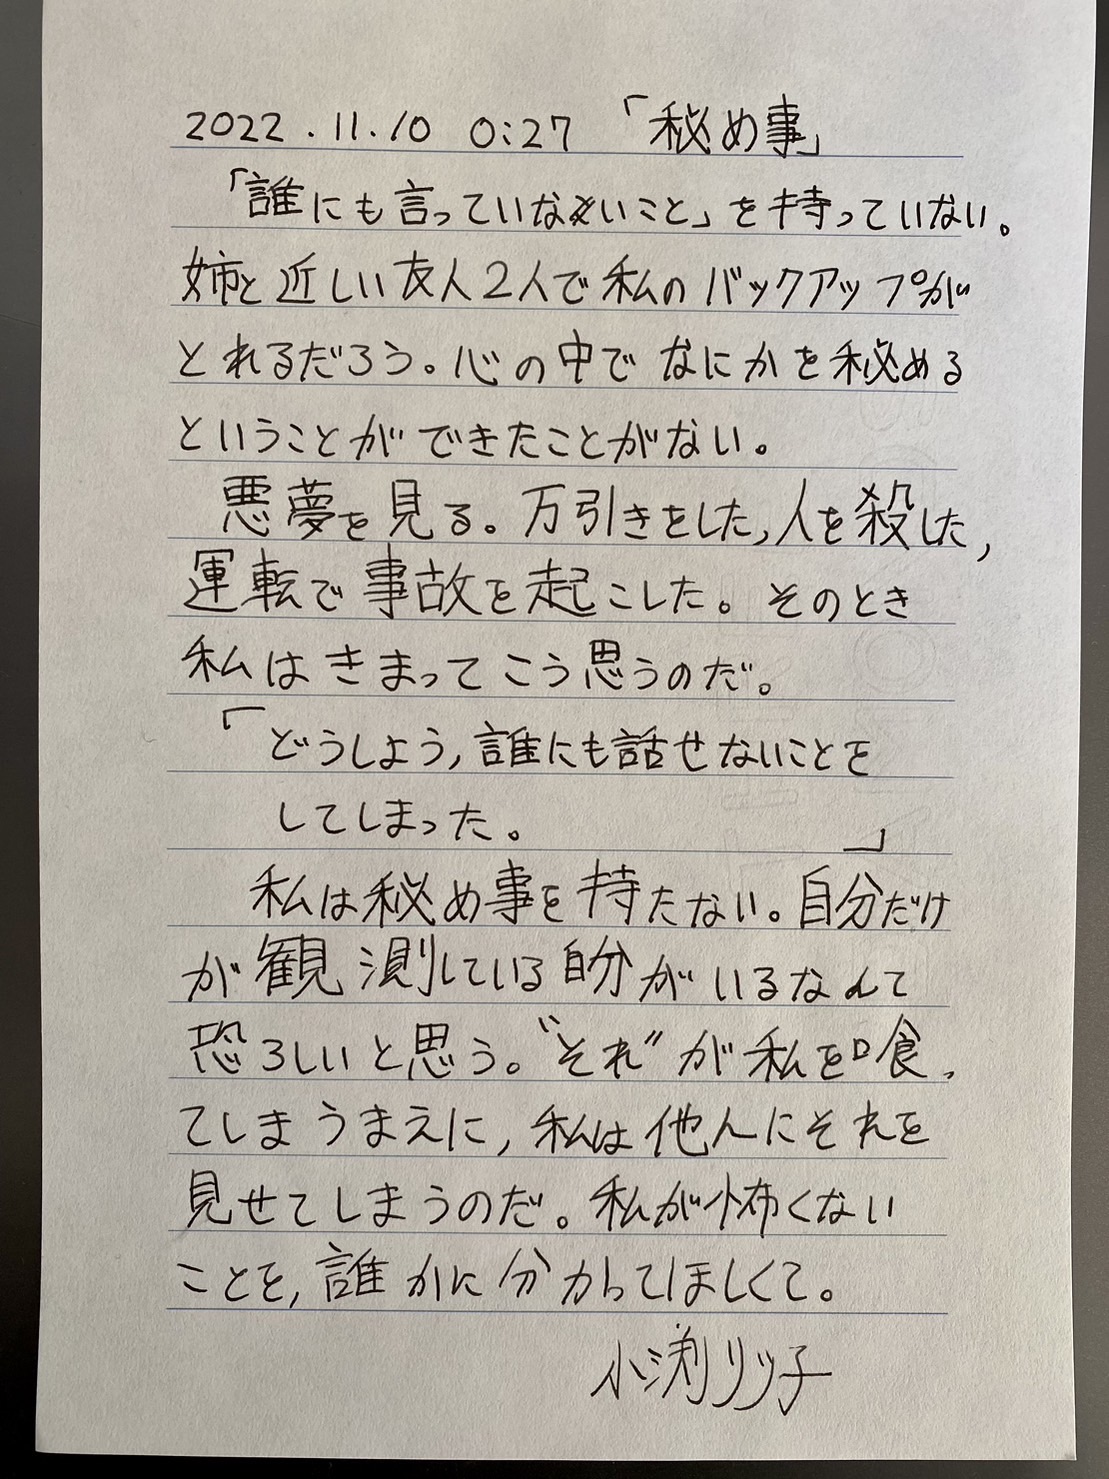 2022.11.10 0:27 「秘め事」
「誰にも言っていないこと」を持っていない。
姉と近しい友人2人で私のバックアップが
とれるだろう。心の中でなにかを秘める
ということができたことがない。
悪夢を見る。万引きをした,人を殺した,
運転で事故を起こした。そのとき
私はきまってこう思うのだ。
「どうしよう,誰にも話せないことを
してしまった。」
私は秘め事を持たない。自分だけ
が観測している自分がいるなんて
恐ろしいと思う。“それ”が私を喰っ
てしまうまえに,私は他人にそれを
見せてしまうのだ。私が怖くない
ことを,誰かに分かってほしくて。
小渕リツ子